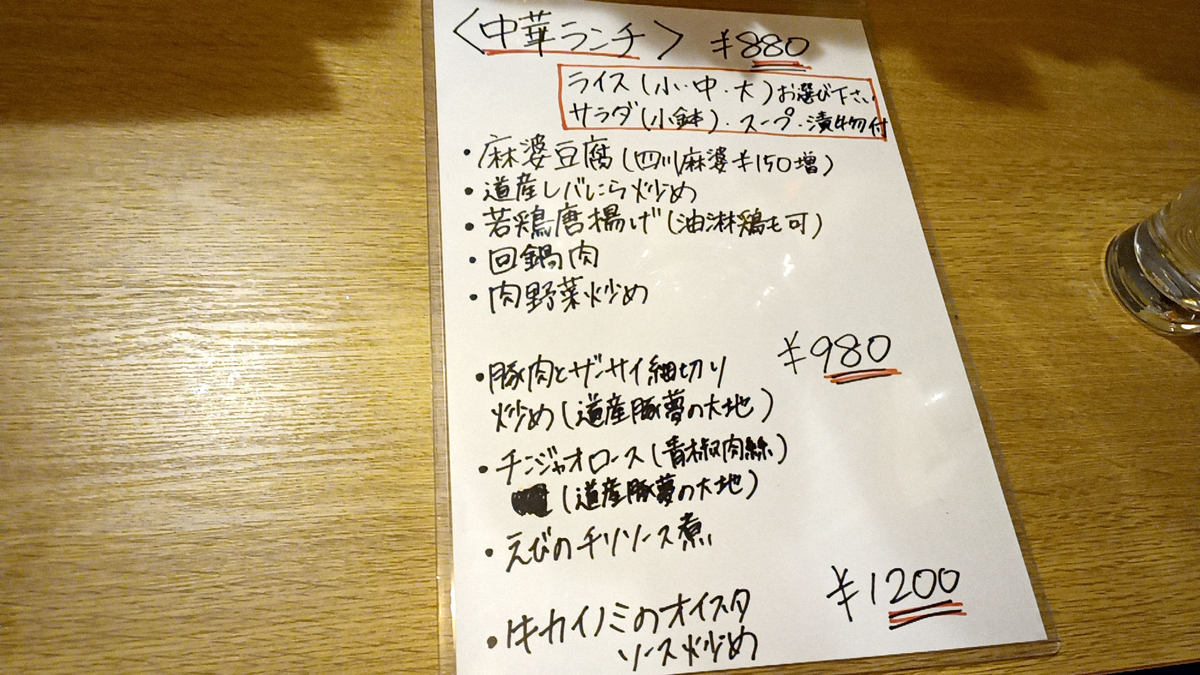 〈中華ランチ〉 ¥880
ライス(小・中・大)お選び下さい
サラダ(小鉢)・スープ・漬物付
・麻婆豆腐(四川麻婆¥150増)
・道産レバにら炒め
・若鶏唐揚げ(油淋鶏も可)
・回鍋肉
・肉野菜炒め
¥980
・豚肉とザーサイ細切り
炒め(道産豚夢の大地)
・チンジャオロース(青椒肉絲)
(道産豚夢の大地)
・えびのチリソース煮
¥1200
・牛カイノミのオイスタ
ソース炒め